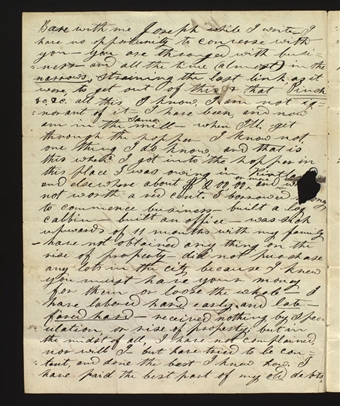 Bare with me Joseph while I write I
have no opportunity to converse with
you - you are thronged with busi-
ness - and all the time almost in the
narrows, straining the last link as it
were, to get out of this or that Pinch
&c.&c. all this I know, I am not ig-
norant of it I have been, and now
am in the same mill - when I'll get
through the hopper I know not
one thing I do know, and that is
this when I got into the hopper in
this place I was owing in Kirtland
and elsewhere about $ and
not worth a red cent. I borrowed
to commence business - built a
cabbin - built an office - was sick
upwards of 11 months with my family
- have not obtained any thing on the
rise of property - did not purchase
any lots in the city because I knew
you must have your money
for them, or loose the whole I
have labored hard early and late -
fared hard - received nothing by spec-
ulation, or rise of property, but in
the midst of all, I have not complained
nor will I - but have tried to be con-
tent, and done the best I know how. I
have paid the best part of my old debts